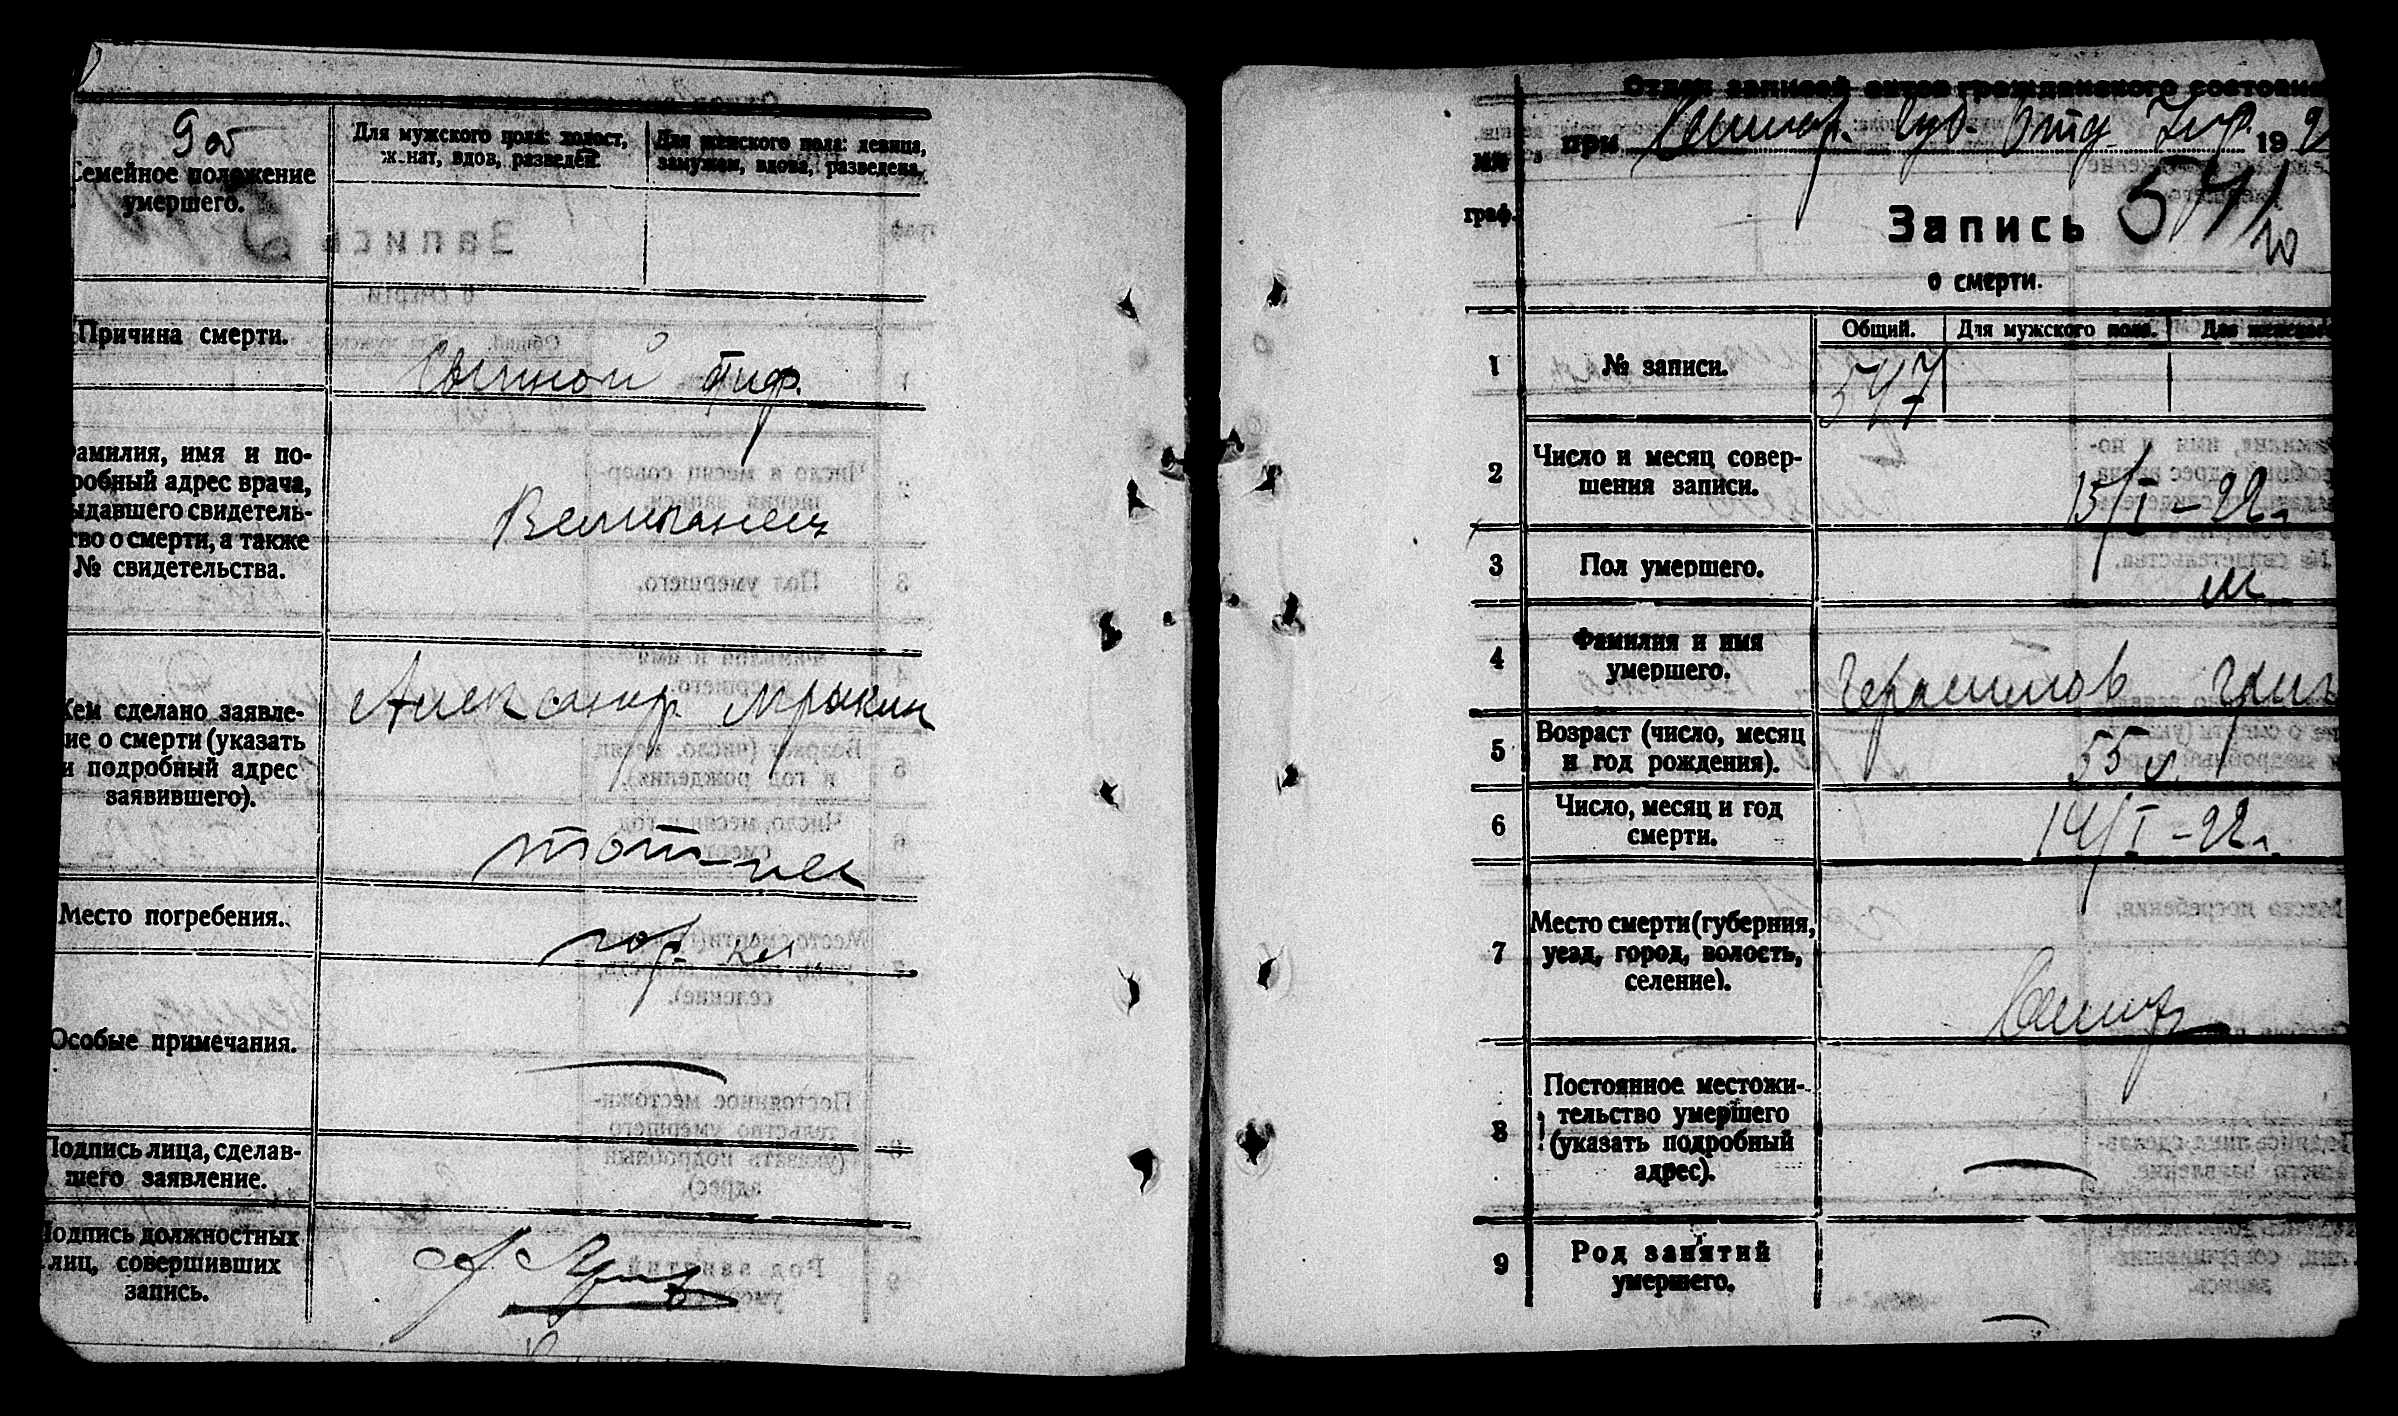 9 об
Семейное положение
умершего.
Для мужского пола: холост,
женат, вдов, разведен.
Для женского пола: девица,
замужем, вдова, разведена.
Причина смерти.
Сыпной тиф.
Фамилия, имя и по-
дробный адрес врача,
выдавшего свидетель-
ство о смерти, а также
№ свидетельства.
Кем сделано заявле-
ние о смерти (указать
и подробный адрес
заявившего).
Александр
Место погребения.
гор. кл.
Особые примечания.
Подпись лица, сделав-
шего заявление.
Подпись должностных
лиц, совершивших
запись.
Отдел записей актов гражданского состояни
при Самар. Губ. Отд. Упр. 192
граф.
Запись
о смерти.
1
№ записи.
Общий.
Для мужского пола.
Для женского
547
2
Число и месяц совер-
шения записи.
15/I – 22 г.
3
Пол умершего.
м
4
Фамилия и имя
умершего.
Герасимов Григ
5
Возраст (число, месяц
и год рождения).
55 л.
6
Число, месяц и год
смерти.
14/I – 22 г.
7
Место смерти (губерния,
уезд, город, волость,
селение).
Самар
8
Постоянное местожи-
тельство умершего
(указать подробный
адрес).
9
Род занятий
умершего.